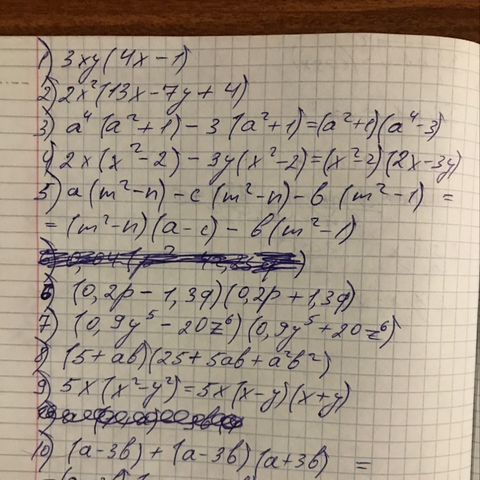 1) 3xy(4x-1)
2) 2x²(13x-7y+4)
3) a⁴(a²+1)-3(a²+1)=(a²+1)(a⁴-3)
4) 2x(x²-2)-3y(x²-2)=(x²-2)(2x-3y)
5) a(m²-n)-c(m²-n)-b(m²-1)=
=(m²-n)(a-c)-b(m²-1)
6) (0,2p-1,3q)(0,2p+1,3q)
7) (0,9y⁵-20z⁶)(0,9y⁵+20z⁶)
8) (5+ab)(25+5ab+a²b²)
9) 5x(x²-y²)=5x(x-y)(x+y)
10) (a-3b)+(a-3b)(a+3b)=